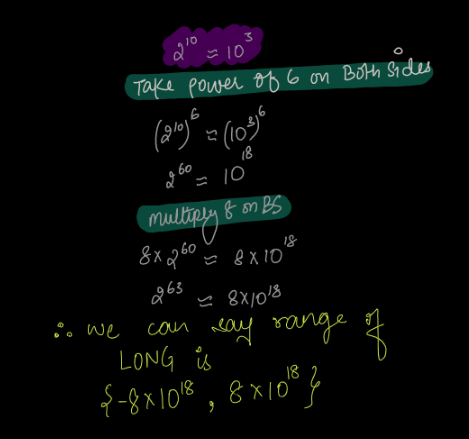 2¹⁰ ≈ 10³
Take power of 6 on Both Sides
(2¹⁰)⁶ ≈ (10³)⁶
2⁶⁰ ≈ 10¹⁸
multiply 8 on BS
8 × 2⁶⁰ ≈ 8 × 10¹⁸
2⁶³ ≈ 8×10¹⁸
∴ we can say range of
LONG is
{-8×10¹⁸, 8×10¹⁸}